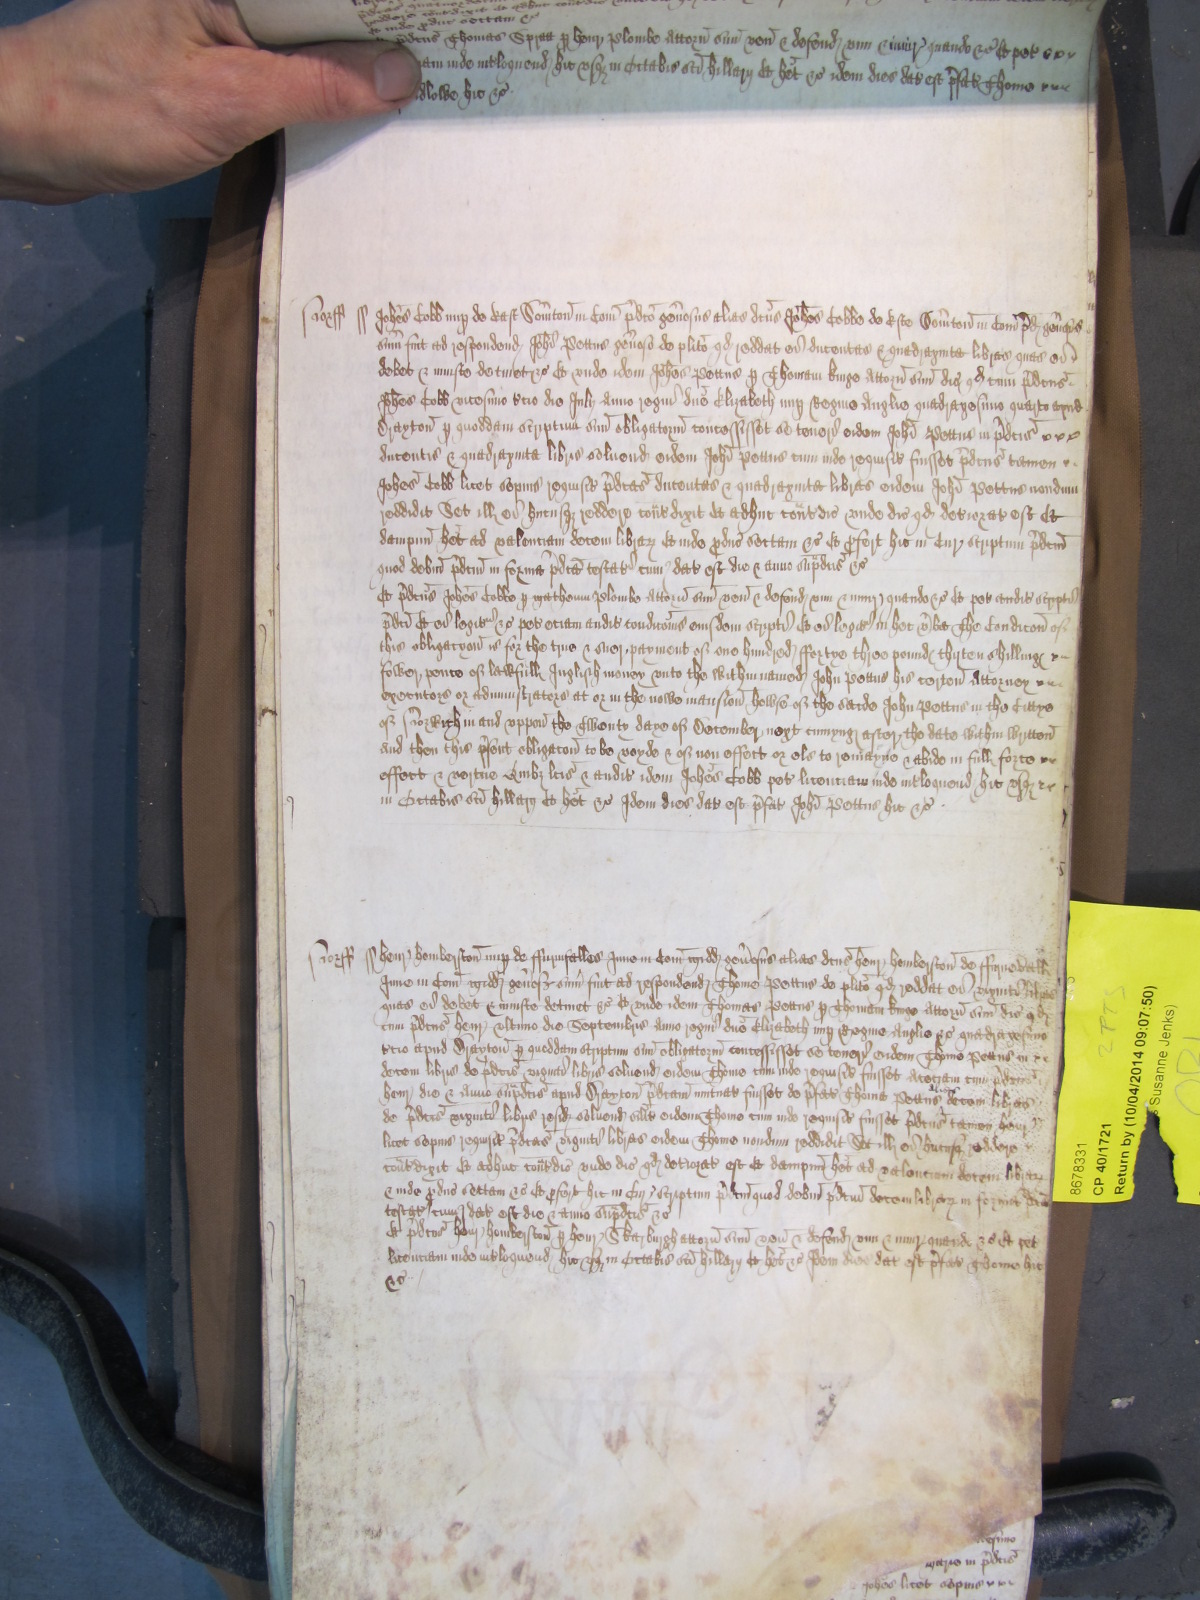 pdcus Thomas Spratt p henr Plombe Attorn suu ven & defend vim & iniur quando &c Et pet
inde intloquend hic usq in Octabis sci Hillary Et het &c idem dies dat est pfat Thome
hic &c
Norff ss Johes Cobb nup de East Somton in Com pdco genosus alias dcus Johes Cobbe de Este Somton in Com pd genosus
sum fuit ad respondend Johi Pettus genoso de plito qd reddat ei ducentas & quadraginta libras quas ei
debet & iniuste detinet &c Et unde idem Johes Pettus p Thomam kinge Attorn suu dic qd cum pdcus
Johes Cobb vicesimo tcio die July Anno regni due Elizabeth nup Regine Anglie quadragesimo quarto apud
Drayton p quoddam scriptum suu obligatoriu concessisset se teneri eidem Johi Pettus in pdcis
ducentis & quadraginta libris solvend eidem Johi Pettus cum inde requisit fuisset pdcus tamen
Johes Cobb licet sepius requisit pdcas ducentas & quadraginta libras eidem Johi Pettus nondum
reddidit Set ill ei hucusq reddere contdixit Et adhuc contdic unde dic qd deteriorat est Et
dampnu het ad valenciam decem librar Et inde pduc sectam &c Et pfert hic in Cur scriptum pdcm
quod debm pdcm in forma pdca testat cuius dat est die & anno supdcis &c
Et pdcus Johes Cobbe p Matheum Plombe Attorn suu ven & defend vim & iniur quando &c Et pet auditu scripti
pdci Et ei legit &c pet etiam auditu condicois eiusdem scripti Et ei legit in hec vba The Condicon of
this obligacyon is for the true & suer payment of one hundred ffortye three pound thirten shilling
fower pence of lawfull Inglish money unto the within named John Pettus his certen Attorney
executors or administrators at or in the nowe mansion howse of the saide John Pettus in the Cittye
of Norwich in and uppon the Twenty daye of December next cumyng after the date within written
And then this psent obligacon to be voyde & of non effect or els to remayne & abide in full force
effect & vertue Quibz lcis & audit idem Johes Cobb pet licenciam inde intloquend hic usq
in Octabis sci Hillary Et het &c Idem dies dat est pfat Johi Pettus hic &c
Norff ss henr homberston nup de Inne in Com genosus alias dcus henr homberston de
Inne in Com genosus sum fuit ad respondend Thome Pettus de plito qd reddat ei viginti libras
quas ei debet & iniuste detinet &c Et unde idem Thomas Pettus p Thomam kinge Attorn suu dic qd
cum pdcus henr ultimo die Septembris Anno regni due Elizabeth nup Regine Anglie &c quadragesimo
tcio apud Drayton p quoddam scriptum suu obligatoriu concessisset se teneri eidem Thome Pettus in
decem libris de pdcis viginti libris solvend eidem Thome cum inde requisit fuisset Acetiam cum pdcus
henr die & Anno supdcis apud Drayton pdcam mutuat fuisset de pfat Thoma Pettus decem libras
de pdcis viginti libris resid solvend eidem Thome cum inde requisit fuisset pdcus tamen henr
licet sepius requisit pdcas viginti libras eidem Thome nondum reddidit Set ill ei hucusq reddere
contdixit Et adhuc contdic unde dic qd deteriorat est Et dampnu het ad valenciam decem librar
& inde pduc sectam &c Et pfert hic in Cur scriptum pdcm quod debm pdcm decem librar in forma pdca
testat cuius dat est die & anno supdcis &c
Et pdcus henr homberston p henr Skarburgh attorn suu ven & defend vim & iniur quando &c Et pet
licenciam inde intloquend hic usq in Octabis sci Hillary Et het &c Idem dies dat est pfat Thome hic
&c
Johes licet sepius
8678331
CP 40/1721
Return by (10/04/2014 09:07:50)
Susanne Jenks)
2 PTS